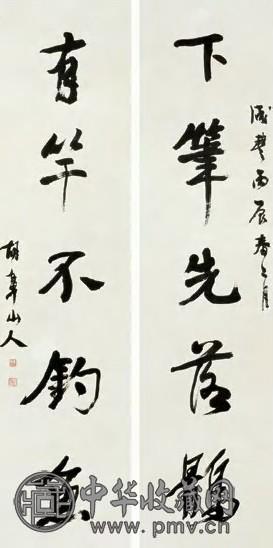 咸豐丙辰春月
下筆先落
有竿不釣魚
胡鼻山人
中华收藏网
www.pmv.cn